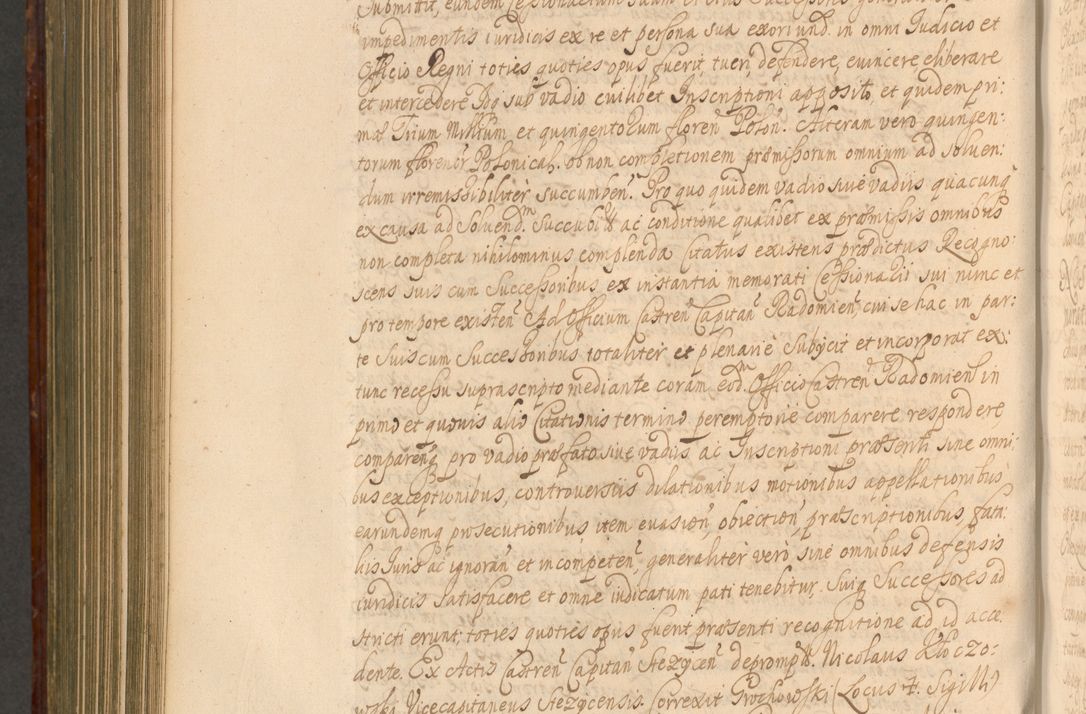 Submittit, eundem Cessionarium suum et eius Successores generaliter
impedimentis iuridicis ex re et persona sua exoriund. in omni Iudicio et
Officio Regni toties quoties opus fuerit tueri, defendere, evincere eliberare
et intercedere Idq sub vadio cuilibet Inscriptioni apposito, et quidem pri:
mo Trium Millium et quingentorum floren Polon. Alteram vero quingen:
torum florenor Polonical. ob non completionem præmissorum omnium ad solven:
dum irremissibiliter succumben. Pro quo quidem vadio sive vadiis quacunq
ex causa ad Solvend. Succubit ac conditione qualibet ex præmissis omnibus
non completa nihilominus complenda Citatus existens prædictus Recogno:
scens suis cum Successoribus, ex instantia memorati Cessionarii sui nunc et
pro tempore existen Ad Officium Castren Capitan Radomien, cui se hac in par:
te suis cum Successoribus totaliter et plenarie Subycit et incorporat ex:
tunc recessu suprascripto mediante coram eod. Officio Castren Radomien in
primo et quovis alio Citationis termino peremptorie comparere respondere,
comparenq pro vadio præfato sive vadiis ac Inscriptioni præsenti sine omni:
bus exceptionibus, controversiis dilationibus motionibus appellationibus
earundemq prosecutionibus, item evasion, obiection, præscriptionibus, fata:
liis Iuris ac ignoran et incompeten, generaliter vero sine omnibus defensis
iuridicis satisfacere et omne iudicatum pati tenebitur, Suiq Successores ad
stricti erunt, toties quoties opus fuerit præsenti recognitione ad id acce:
dente. Ex Actis Castren Capitan Stezycen depromptt. Nicolaus Kłoczo:
wski Vicecapitaneus Stezycensis. Correxit Grochowski (Locus +. Sigilli)